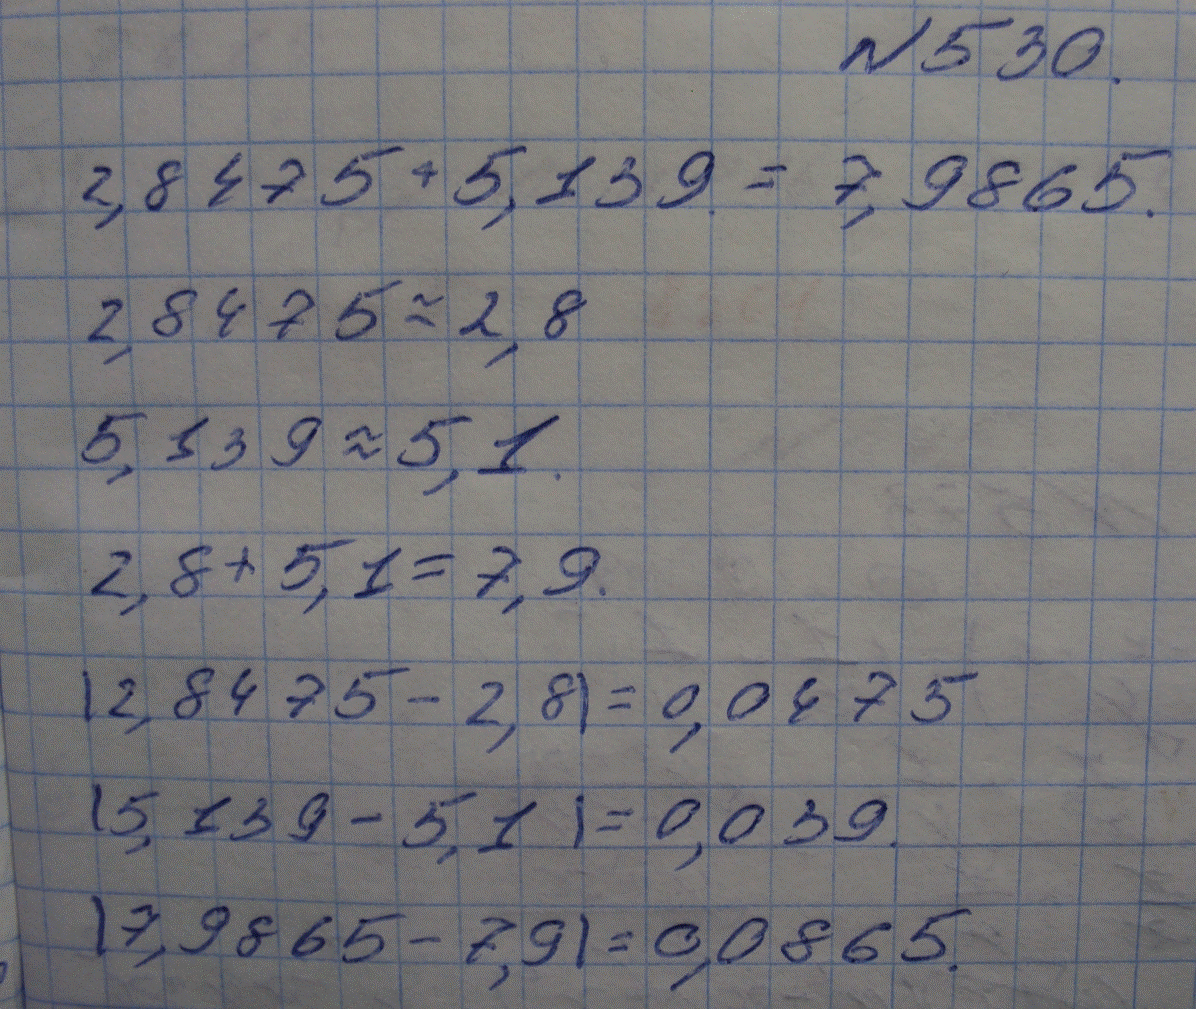 №530.
2,8475+5,139.=7,9865.
2,8475≈2,8
5,139≈5,1.
2,8+5,1=7,9.
|2,8475-2,8|=0,0475
|5,139-5,1|=0,039.
|7,9865-7,9|=0,0865.